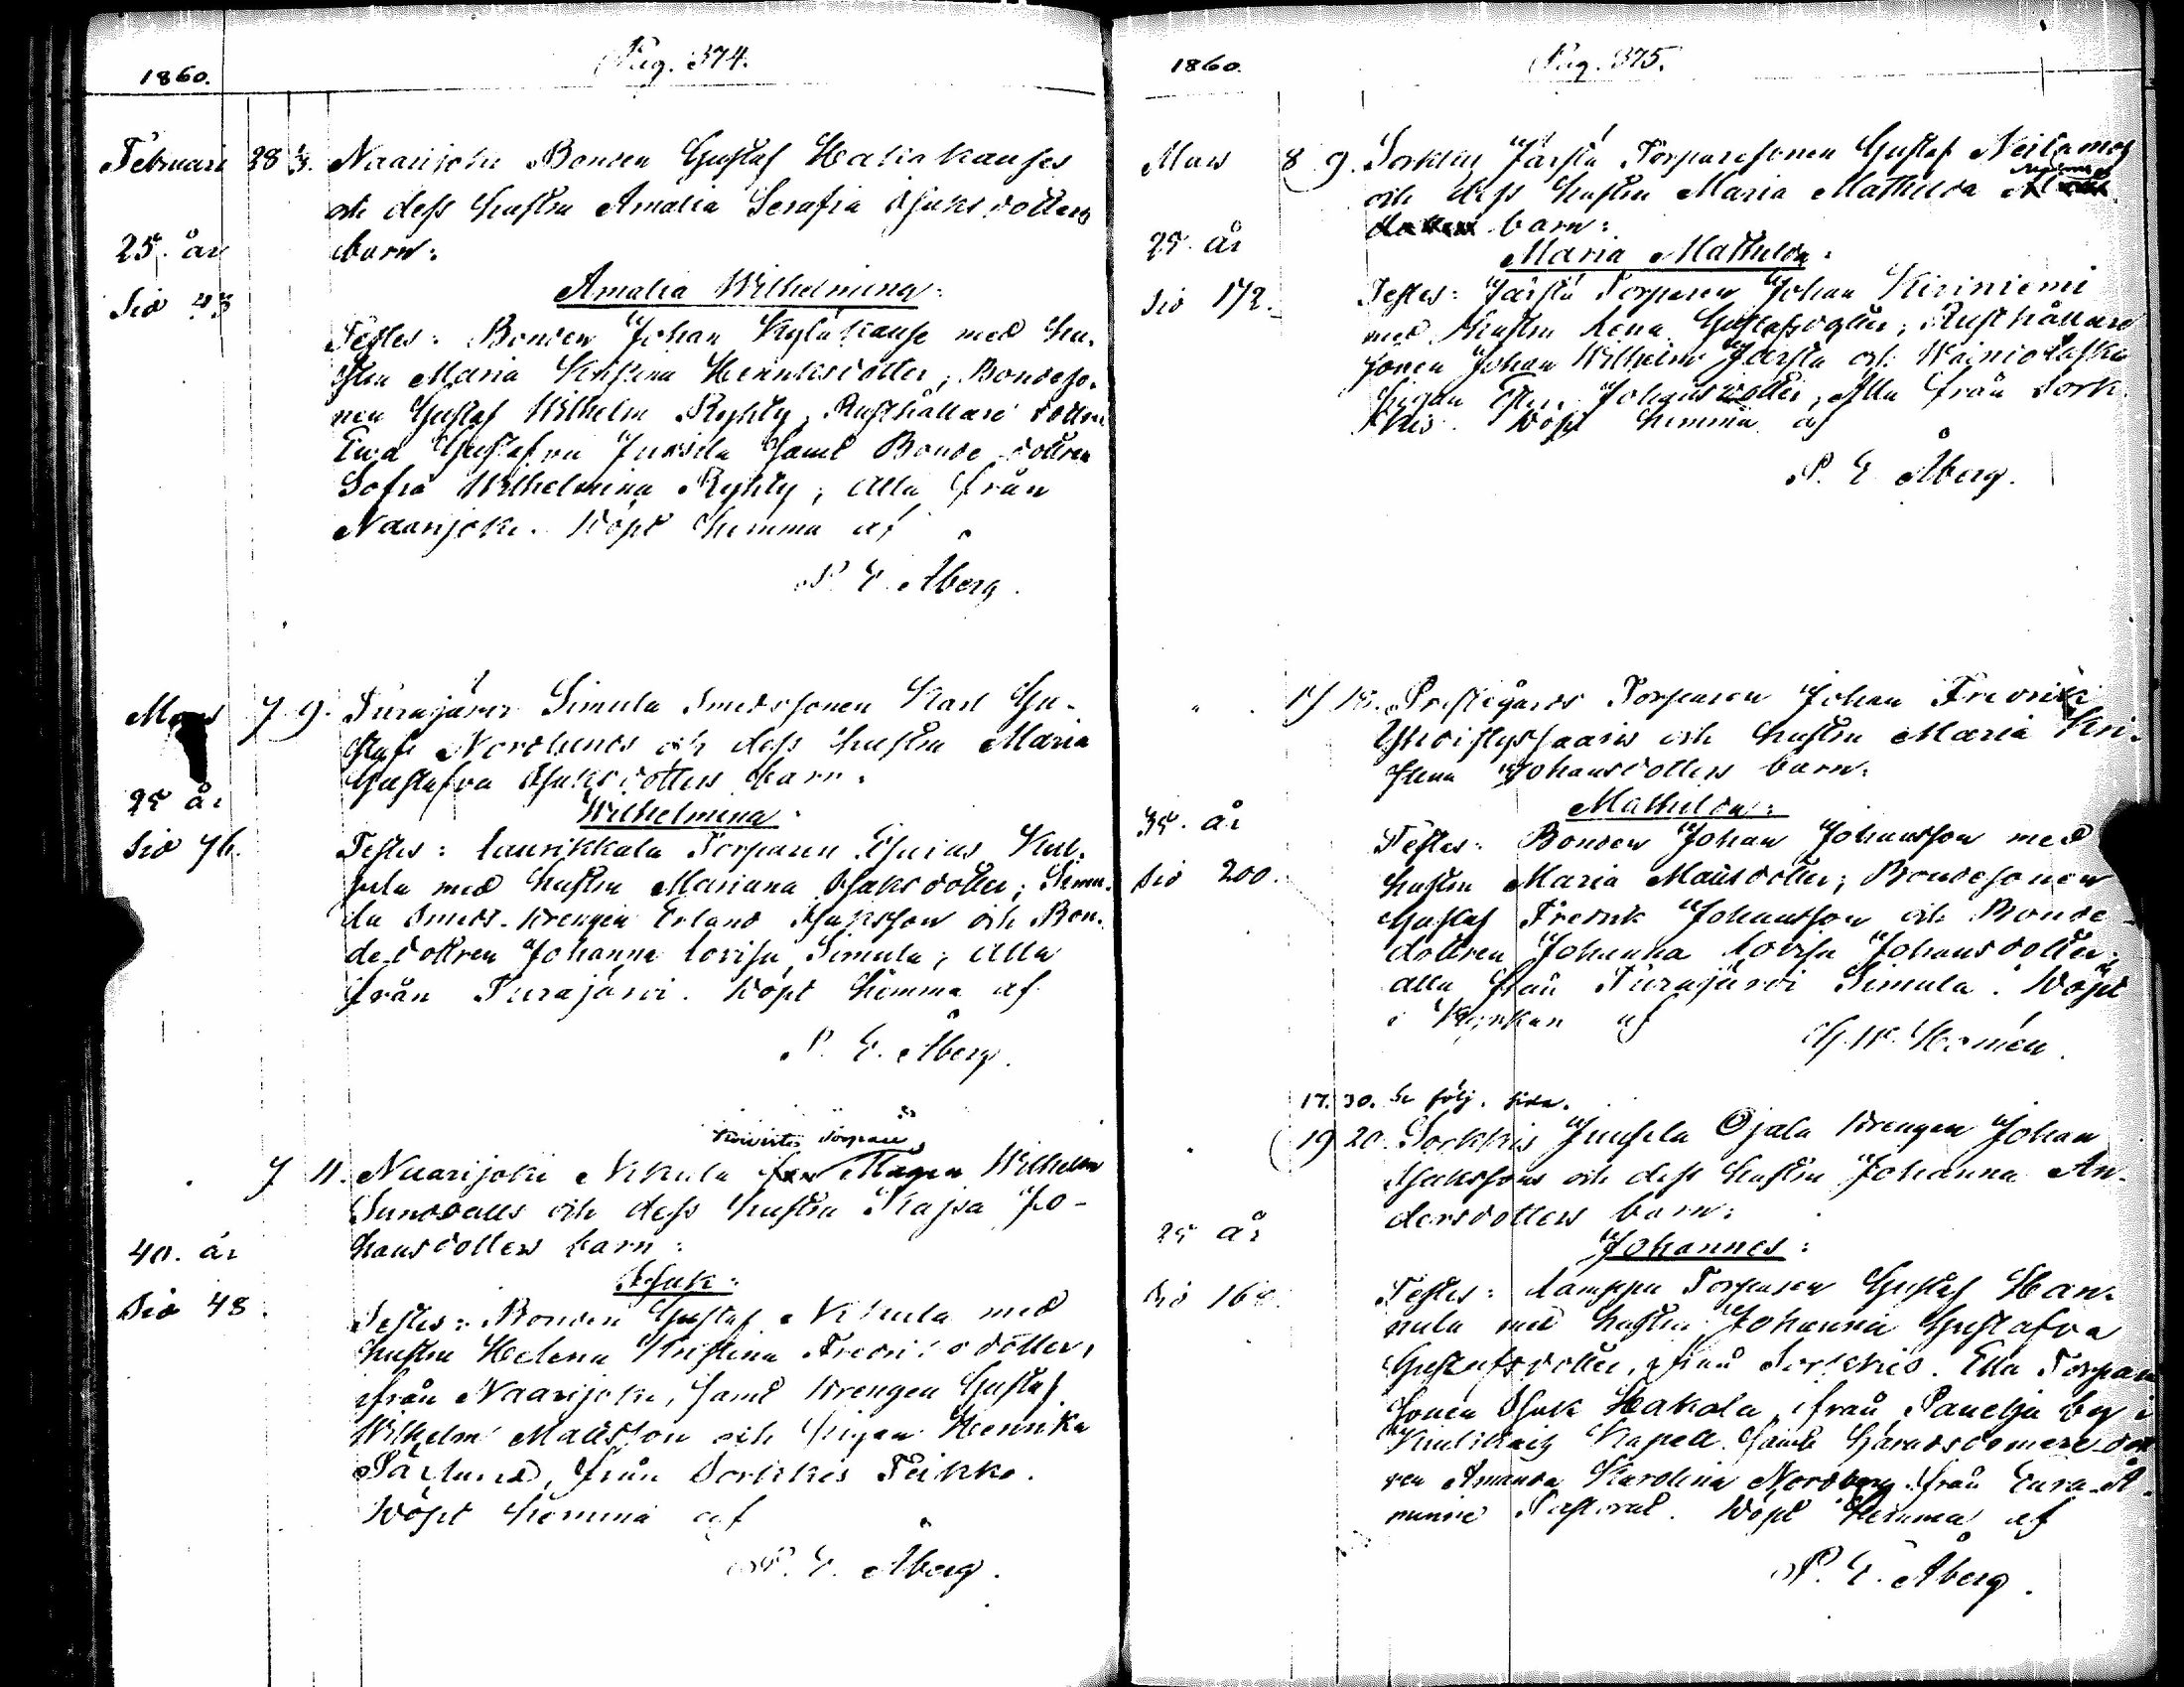 1860.
Pag. 374.
Februari 28 1/3. Naarijoki Bonden Gustaf Haliakauses
och dess hustru Amalia Serafia Isaksdotters
25. år
barn:
Amalia Wilhelmina:
Sid 43
Testes: Bonden Johan Kyläkause med hu-
stru Maria Kristina Henriksdotter; Bondeso-
nen Gustaf Wilhelm Ryhty, Rusthållare dottren
Ewa Gustafva Jussila samt Bonde dottren
Sofia Wilhelmina Ryhty; alla från
Naarijoki. Döpt hemma af
P. E. Åberg.
Mars 7 9. Turajärvi Simula Smedssonen Karl Gu-
stafs Nordlunds och dess hustru Maria
Gustafva Isaksdotters barn:
25 år
Wilhelmina:
Sid 76.
Testes: Laurikkala Torparen Esaias
med hustru Mariana Isaksdotter; Simu-
la Smeds-drengen Erland Isaksson och Bon-
dedottren Johanna Lovisa Simula; alla
från Turajärvi. Döpt hemma af
P. E. Åberg.
Torpare
7 11. Naarijoki Nikula Mågen Wilhelm
Sundvalls och dess hustru Kajsa Jo-
hansdotters barn:
40. år
Isak:
Sid 48.
Testes: Bonden Gustaf Nikula med
hustru Helena Kristina Fredriksdotter,
från Naarijoki, samt drengen Gustaf
Wilhelm Matsson och pigan Henrika
från Sorkkis Peikko.
Döpt hemma af
P. E. Åberg.
1860.
Pag. 375.
Mars 8 9. Sorkkis Järstä Torparesonen Gustaf Neitamos
och dess hustru Maria Mathilda
barn:
25. år
Maria Mathilda:
Sid 172.
Testes: Järstä Torparen Johan Kiriniemi
med hustru Lena Gustafsdotter; Rusthållare
sonen Johan Wilhelm Järstä och
Pigan Johansdotter, Alla från Sork-
kis. Döpt hemma af
P. E. Åberg.
17 18. Prestegårds Torparen Johan Fredrik
och hustru Maria Kri-
stina Johansdotters barn:
Mathilda:
35. år
Testes: Bonden Johan Johansson med
Sid 200.
hustru Maria Matsdotter; Bondesonen
Gustaf Fredrik Johansson och Bonde-
dottren Johanna Lovisa Johansdotter;
alla från Turajärvi Simula. Döpt
i Kyrkan af
Homén.
17. 30. Se följ. sida.
19 20. Sorkkis Juusela Ojala drengen Johan
Isakssons och dess hustru Johanna An-
dersdotters barn:
25 år
Johannes:
Sid 16
Testes: Lamppu Torparen Gustaf Han-
nula med hustru Johanna Gustafva
Gustafsdotter, från Sorkkis. Torpare
sonen Isak Hakola, från Panelja by i
Kiukais Kapell. samt häradsdomare dott
ren Amanda Karolina Nordberg från Eura Å-
minne Pastorat. Döpt hemma af
P. E. Åberg.